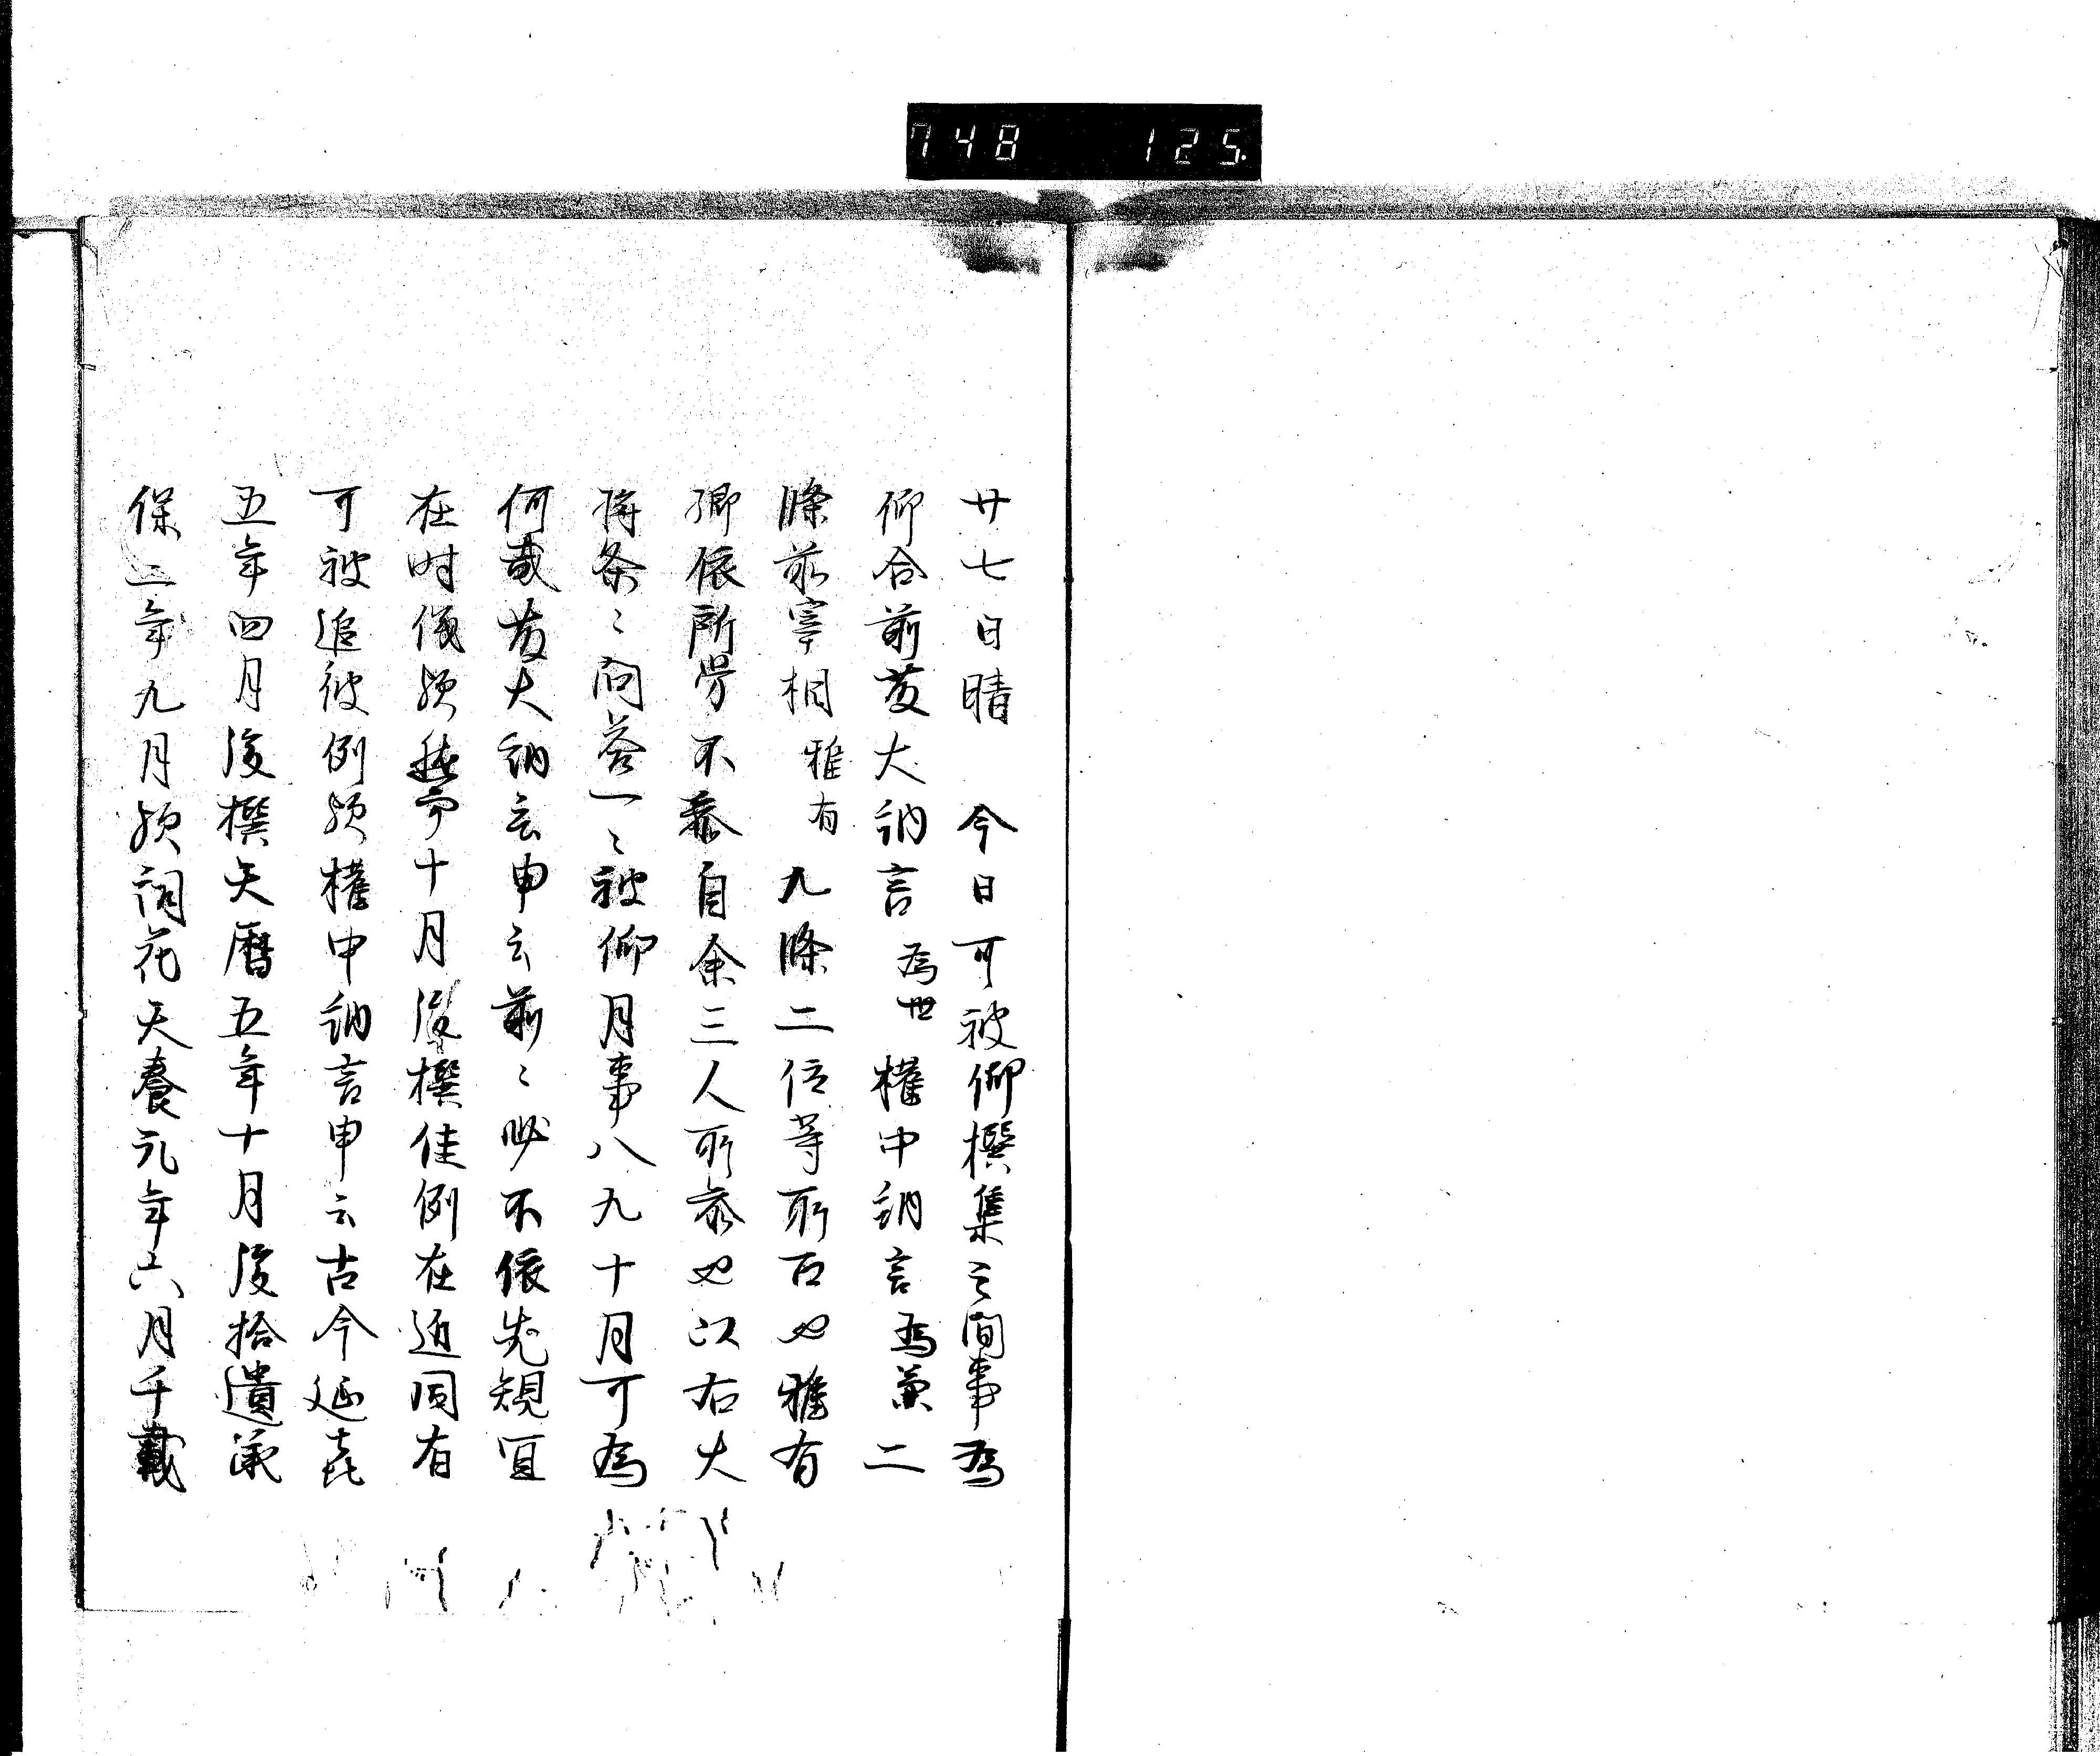 748 125
廿七日晴 今日可被仰撰集之間事為
仰合前藤大納言為世権中納言為兼二
條前宰相雅有九條二位等所召也雅有
卿依所労不参自余三人所参也以右大
将条〻問答一〻被仰月事八九十月可為
何哉藤大納言申云前〻必不依先規宜
在時儀歟十月後撰佳例在近同有
可被追彼例歟権中納言申云古今延㐂
五年四月後撰天暦五年十月後拾遺承
保二年九月歟詞花天養元年六月千載